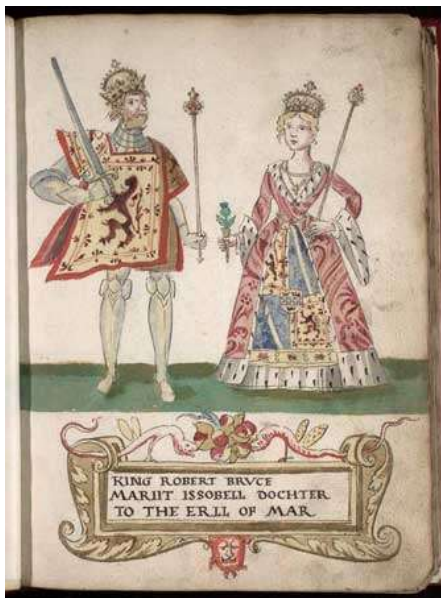 KING ROBERT BRVCE
MARIIT ISSOBELL DOCHTER
TO THE ERLL OF MAR